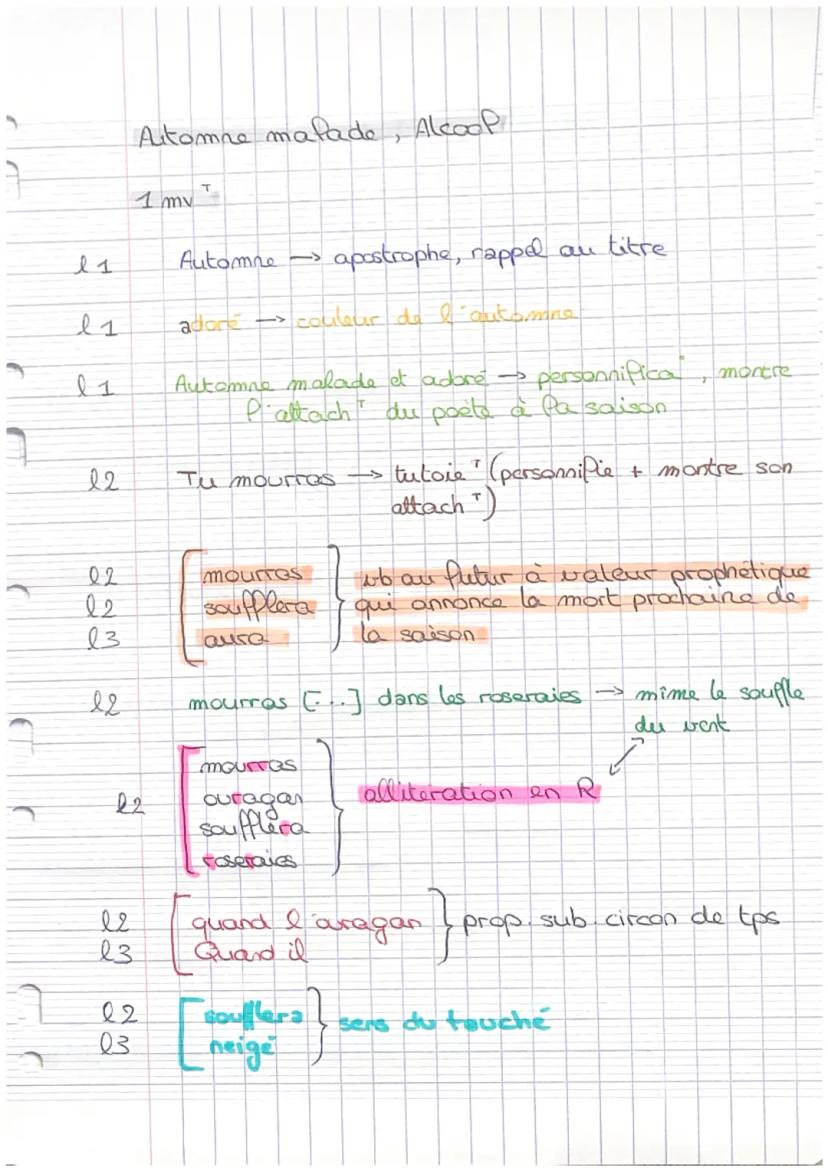 Automne malade, Alcool
1 mv T
l1 Automne → apostrophe, rappel au titre
l1 adoré → couleur de l'automne
l1 Automne malade et adoré → personnifica°, montre
l'attach T du poète à la saison
l2 Tu mourras → tutoie T (personnifie + montre son
attach T)
l2 mourras } vb au futur à valeur prophétique
l2 soufflera } qui annonce la mort prochaine de
l3 aura } la saison
l2 mourras [...] dans les roseraies → mime le souffle
du vent
mourras
l2 ouragan } alliteration en R
soufflera
roseraies
l2 quand l'ouragan } prop. sub. circon de tps
l3 Quand il
l2 soufflera } sens du touché
l3 neigé